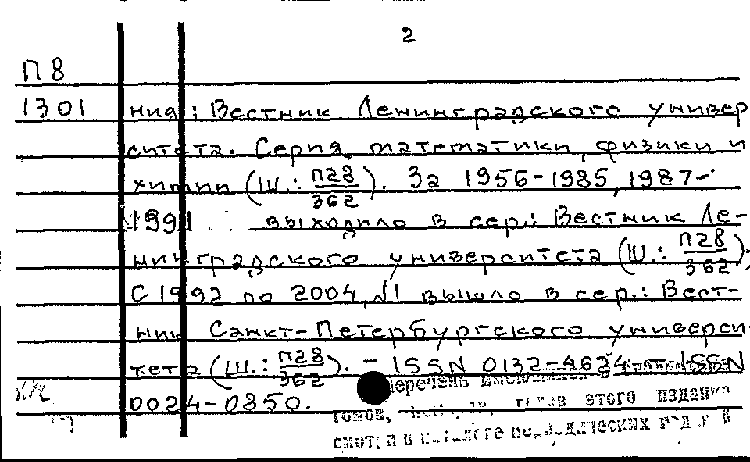 2
П8
1301 ния: Вестник Ленинградского универ
ситета. Серия математики, физики и
химии (Ш.: П28/362). За 1956-1985, 1987-
1991 выходило в сер.: Вестник Ле-
нинградского университета (Ш.: П28/362);
С 1992 по 2004, №1 вышло в сер.: Вест-
ник Санкт-Петербургского универси-
тета (Ш.: П28/362). - ISSN 0132-4624 = ISSN
0024-0850.
перечень
томов, этого издания
смотри в каталоге периодических изданий